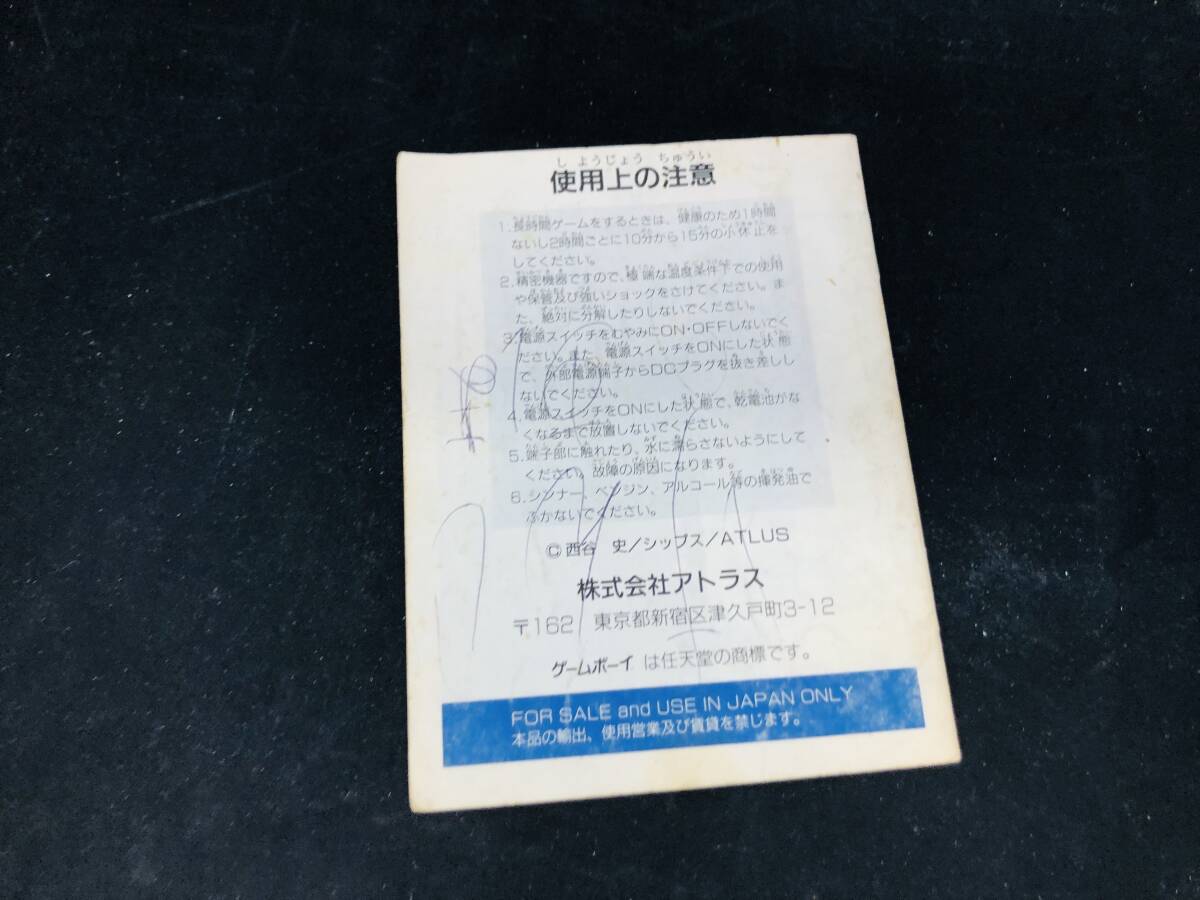 しようじょう ちゅうい
使用上の注意
1.長時間ゲームをするときは、健康のため1時間
ないし2時間ごとに10分から15分の小休止を
してください。
2.精密機器ですので、極端な温度条件下での使用
や保管及び強いショックをさけてください。ま
た、絶対に分解したりしないでください。
3.電源スイッチをむやみにON・OFFしないでく
ださい。また 電源スイッチをONにした状態
で、外部電源端子からDCプラグを抜き差しし
ないでください。
4.電源スイッチをONにした状態で、乾電池がな
くなるまで放置しないでください。
5.端子部に触れたり、水に濡らさないようにして
ください。故障の原因になります。
6.シンナー、ベンジン、アルコール等の揮発油で
ふかないでください。
©西谷 史/シップス/ATLUS
株式会社アトラス
〒162 東京都新宿区津久戸町3-12
ゲームボーイ は任天堂の商標です。
FOR SALE and USE IN JAPAN ONLY
本品の輸出、使用営業及び賃貸を禁じます。